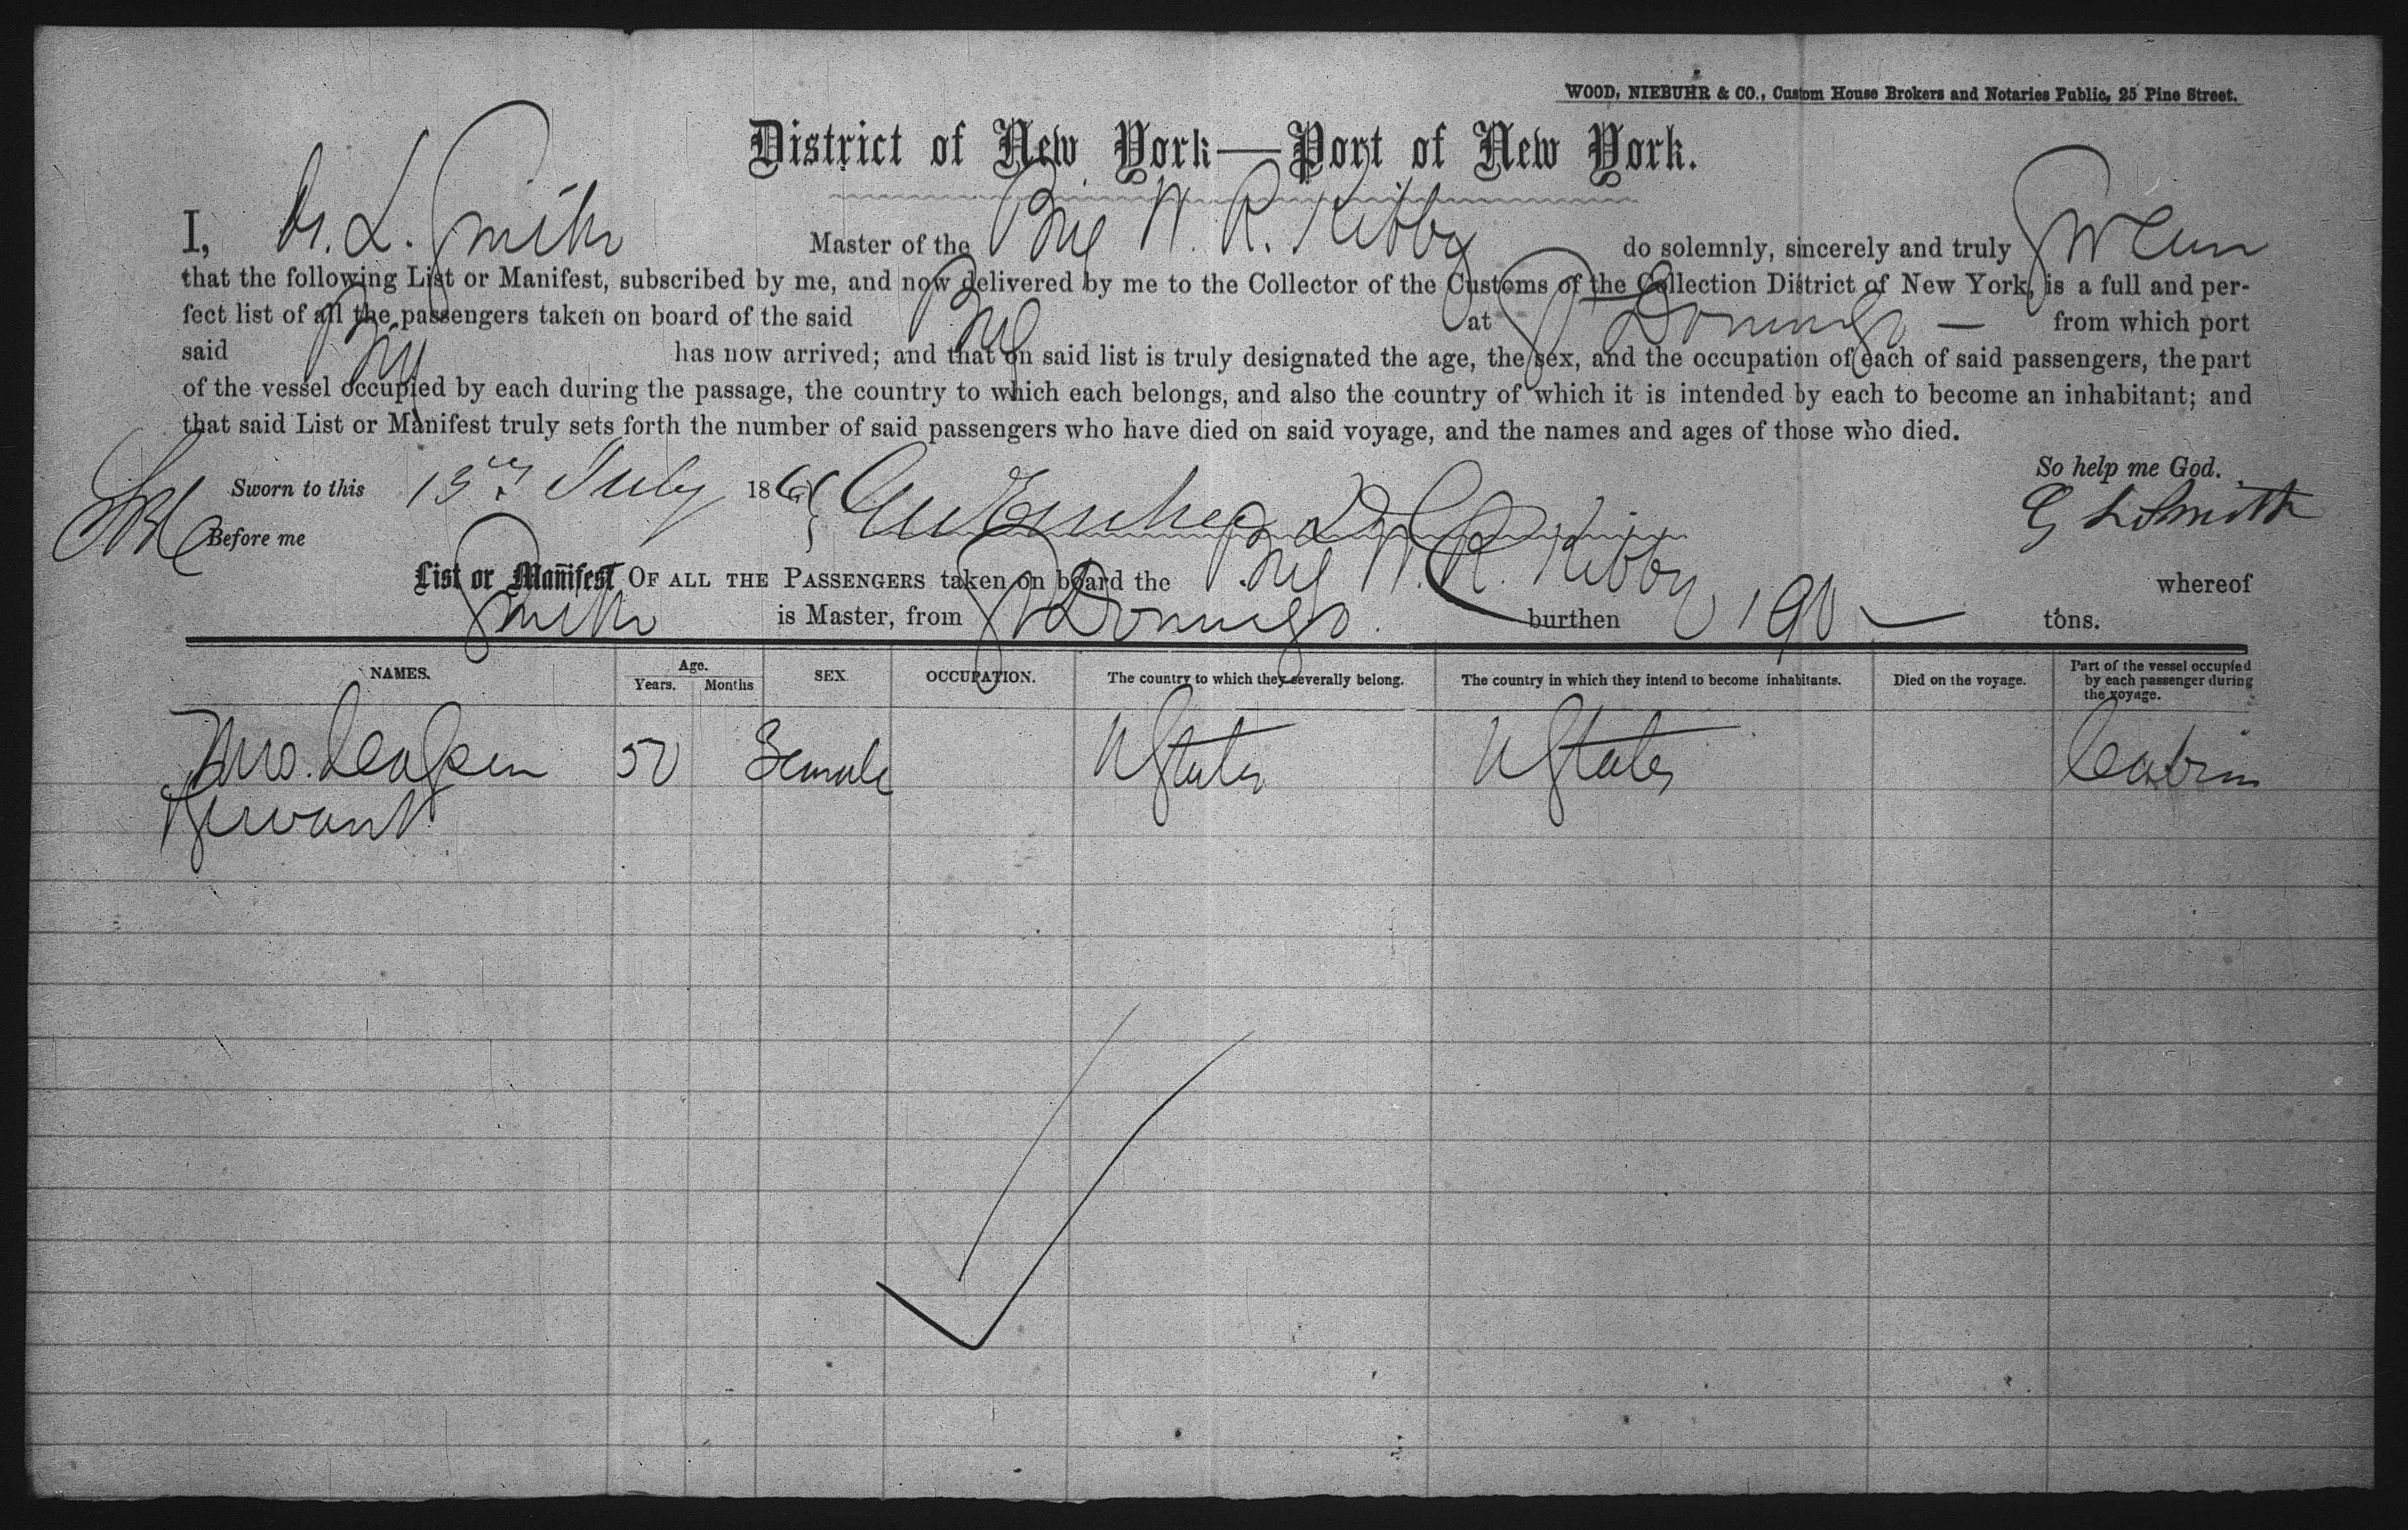 WOOD, NIEBUHR & CO., Custom House Brokers and Notaries Public, 25 Pine Street.
District of New York—Port of New York.
I, L. Smith Master of the Brig W. R. Kibby do solemnly, sincerely and truly Swear
that the following List or Manifest, subscribed by me, and now delivered by me to the Collector of the Customs of the Collection District of New York, is a full and per-
fect list of all the passengers taken on board of the said Brig at St Domingo — from which port
said Brig has now arrived; and that on said list is truly designated the age, the sex, and the occupation of each of said passengers, the part
of the vessel occupied by each during the passage, the country to which each belongs, and also the country of which it is intended by each to become an inhabitant; and
that said List or Manifest truly sets forth the number of said passengers who have died on said voyage, and the names and ages of those who died.
So help me God.
Sworn to this 13 July 186
G L Smith
Before me
List or Manifest OF ALL THE PASSENGERS taken on board the Brig W. R. Kibby whereof
Smith is Master, from St Domingo. burthen 190 — tons.
NAMES. Age. Years. Months SEX. OCCUPATION. The country to which they severally belong. The country in which they intend to become inhabitants. Died on the voyage. Part of the vessel occupied by each passenger during the voyage.
Mrs. 50 Female U States U States Cabin
Servant